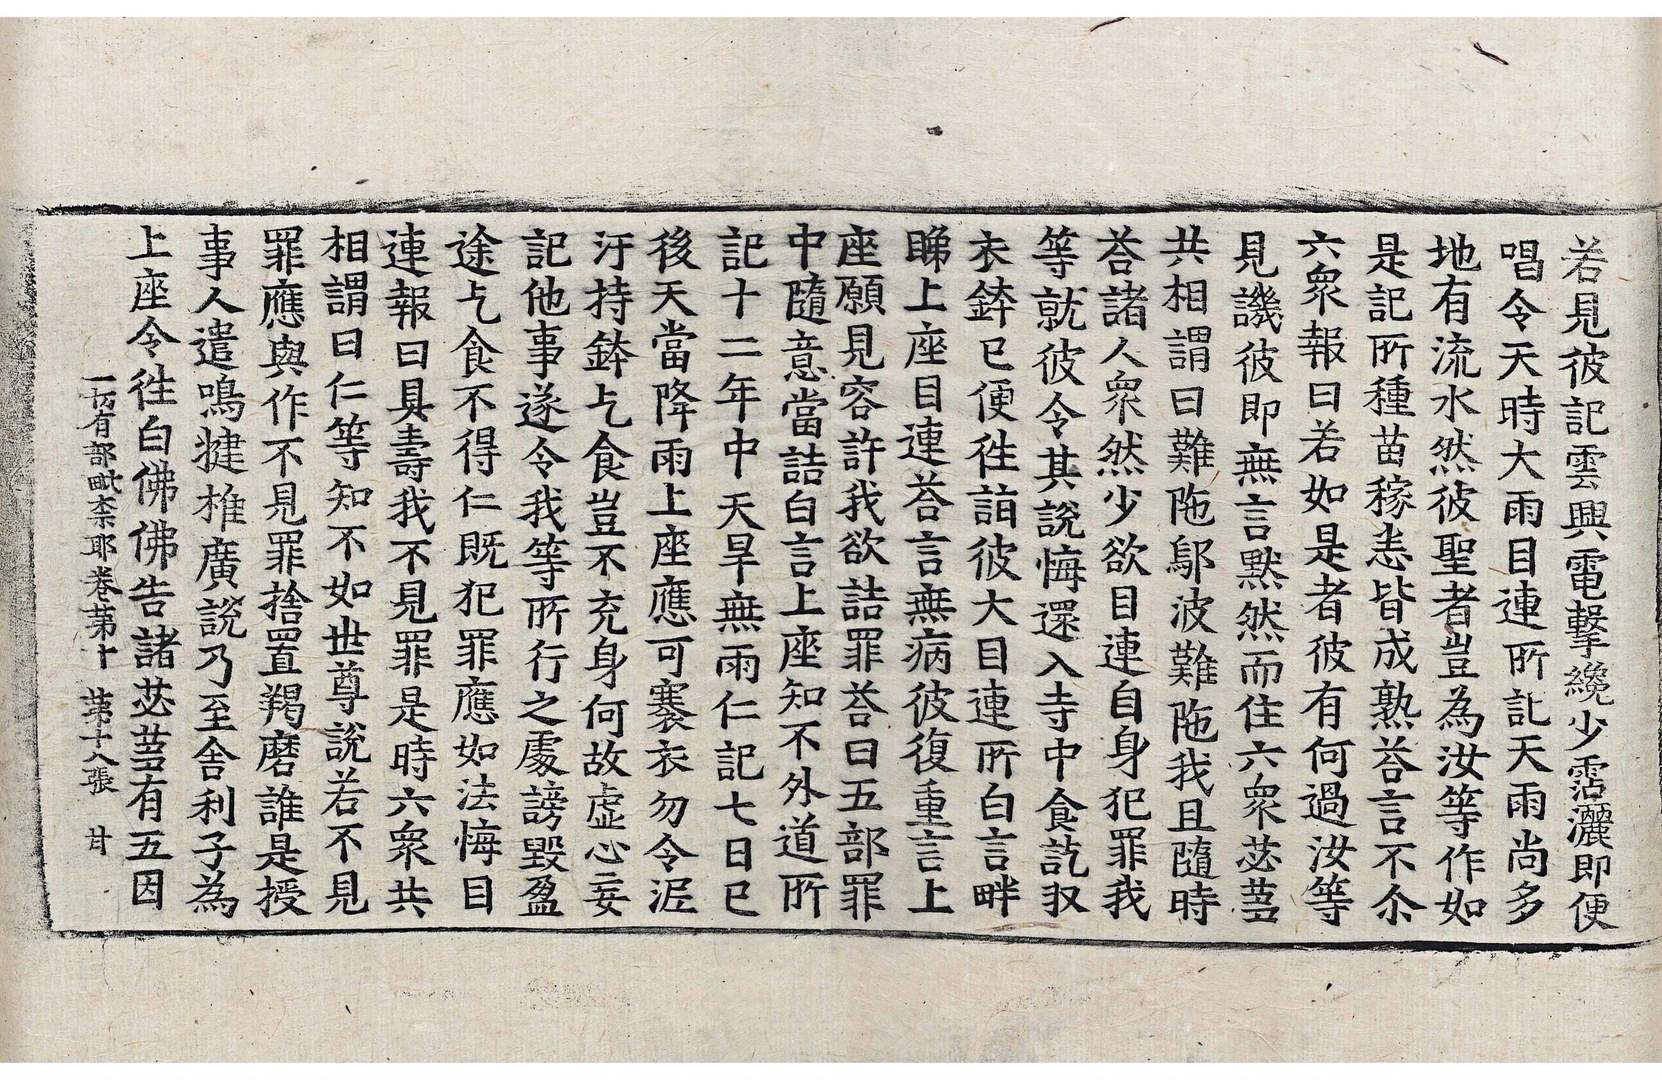 若見彼記雲興電擊纔少霑灑即便
唱令天時大雨目連所記天雨尚多
地有流水然彼聖者豈為汝等作如
是記所種苗稼悉皆成熟荅言不尒
六衆報曰若如是者彼有何過汝等
見譏彼即無言默然而住六衆苾蒭
共相謂曰難陁鄔波難陁我且隨時
荅諸人衆然少欲目連自身犯罪我
等就彼令其說悔還入寺中食訖収
衣鉢已便徃詣彼大目連所白言畔
睇上座目連荅言無病彼復重言上
座願見容許我欲詰罪荅曰五部罪
中隨意當詰白言上座知不外道所
記十二年中天旱無雨仁記七日已
後天當降雨上座應可褰衣勿令泥
汙持鉢乞食豈不充身何故虛心妄
記他事遂令我等所行之處謗毀盈
途乞食不得仁既犯罪應如法悔目
連報曰具壽我不見罪是時六衆共
相謂曰仁等知不如世尊說若不見
罪應與作不見罪捨置羯磨誰是授
事人遣鳴揵椎廣說乃至舍利子為
上座令徃白佛佛告諸苾蒭有五因
一切有部毗柰耶卷第十　第十八張　甘